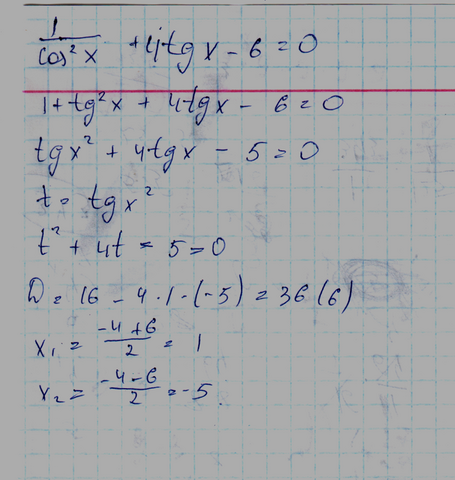 1/cos²x + 4tgx - 6 = 0
1 + tg²x + 4tgx - 6 = 0
tgx² + 4tgx - 5 = 0
t = tgx²
t² + 4t = 5 = 0
D = 16 - 4 · 1 · (-5) = 36 (6)
x₁ = (-4+6)/2 = 1
x₂ = (-4-6)/2 = -5